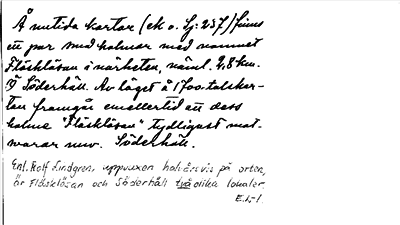 Å nutida kartor (ek o. Sj: 257) finns
ett par små holmar med namnet
Fläsklösan i närheten, näml. 2,8 km.
Söderhäll. Av läget å 1700-talskar-
tan framgår emellertid att dess
holme "Fläsklösan" tydligast mot-
svarar nuv. Söderhäll.
Enl. Rolf Lindgren, uppvuxen halvårsvis på orten,
är Fläsklösan och Söderhäll två olika lokaler.
E.L-l.